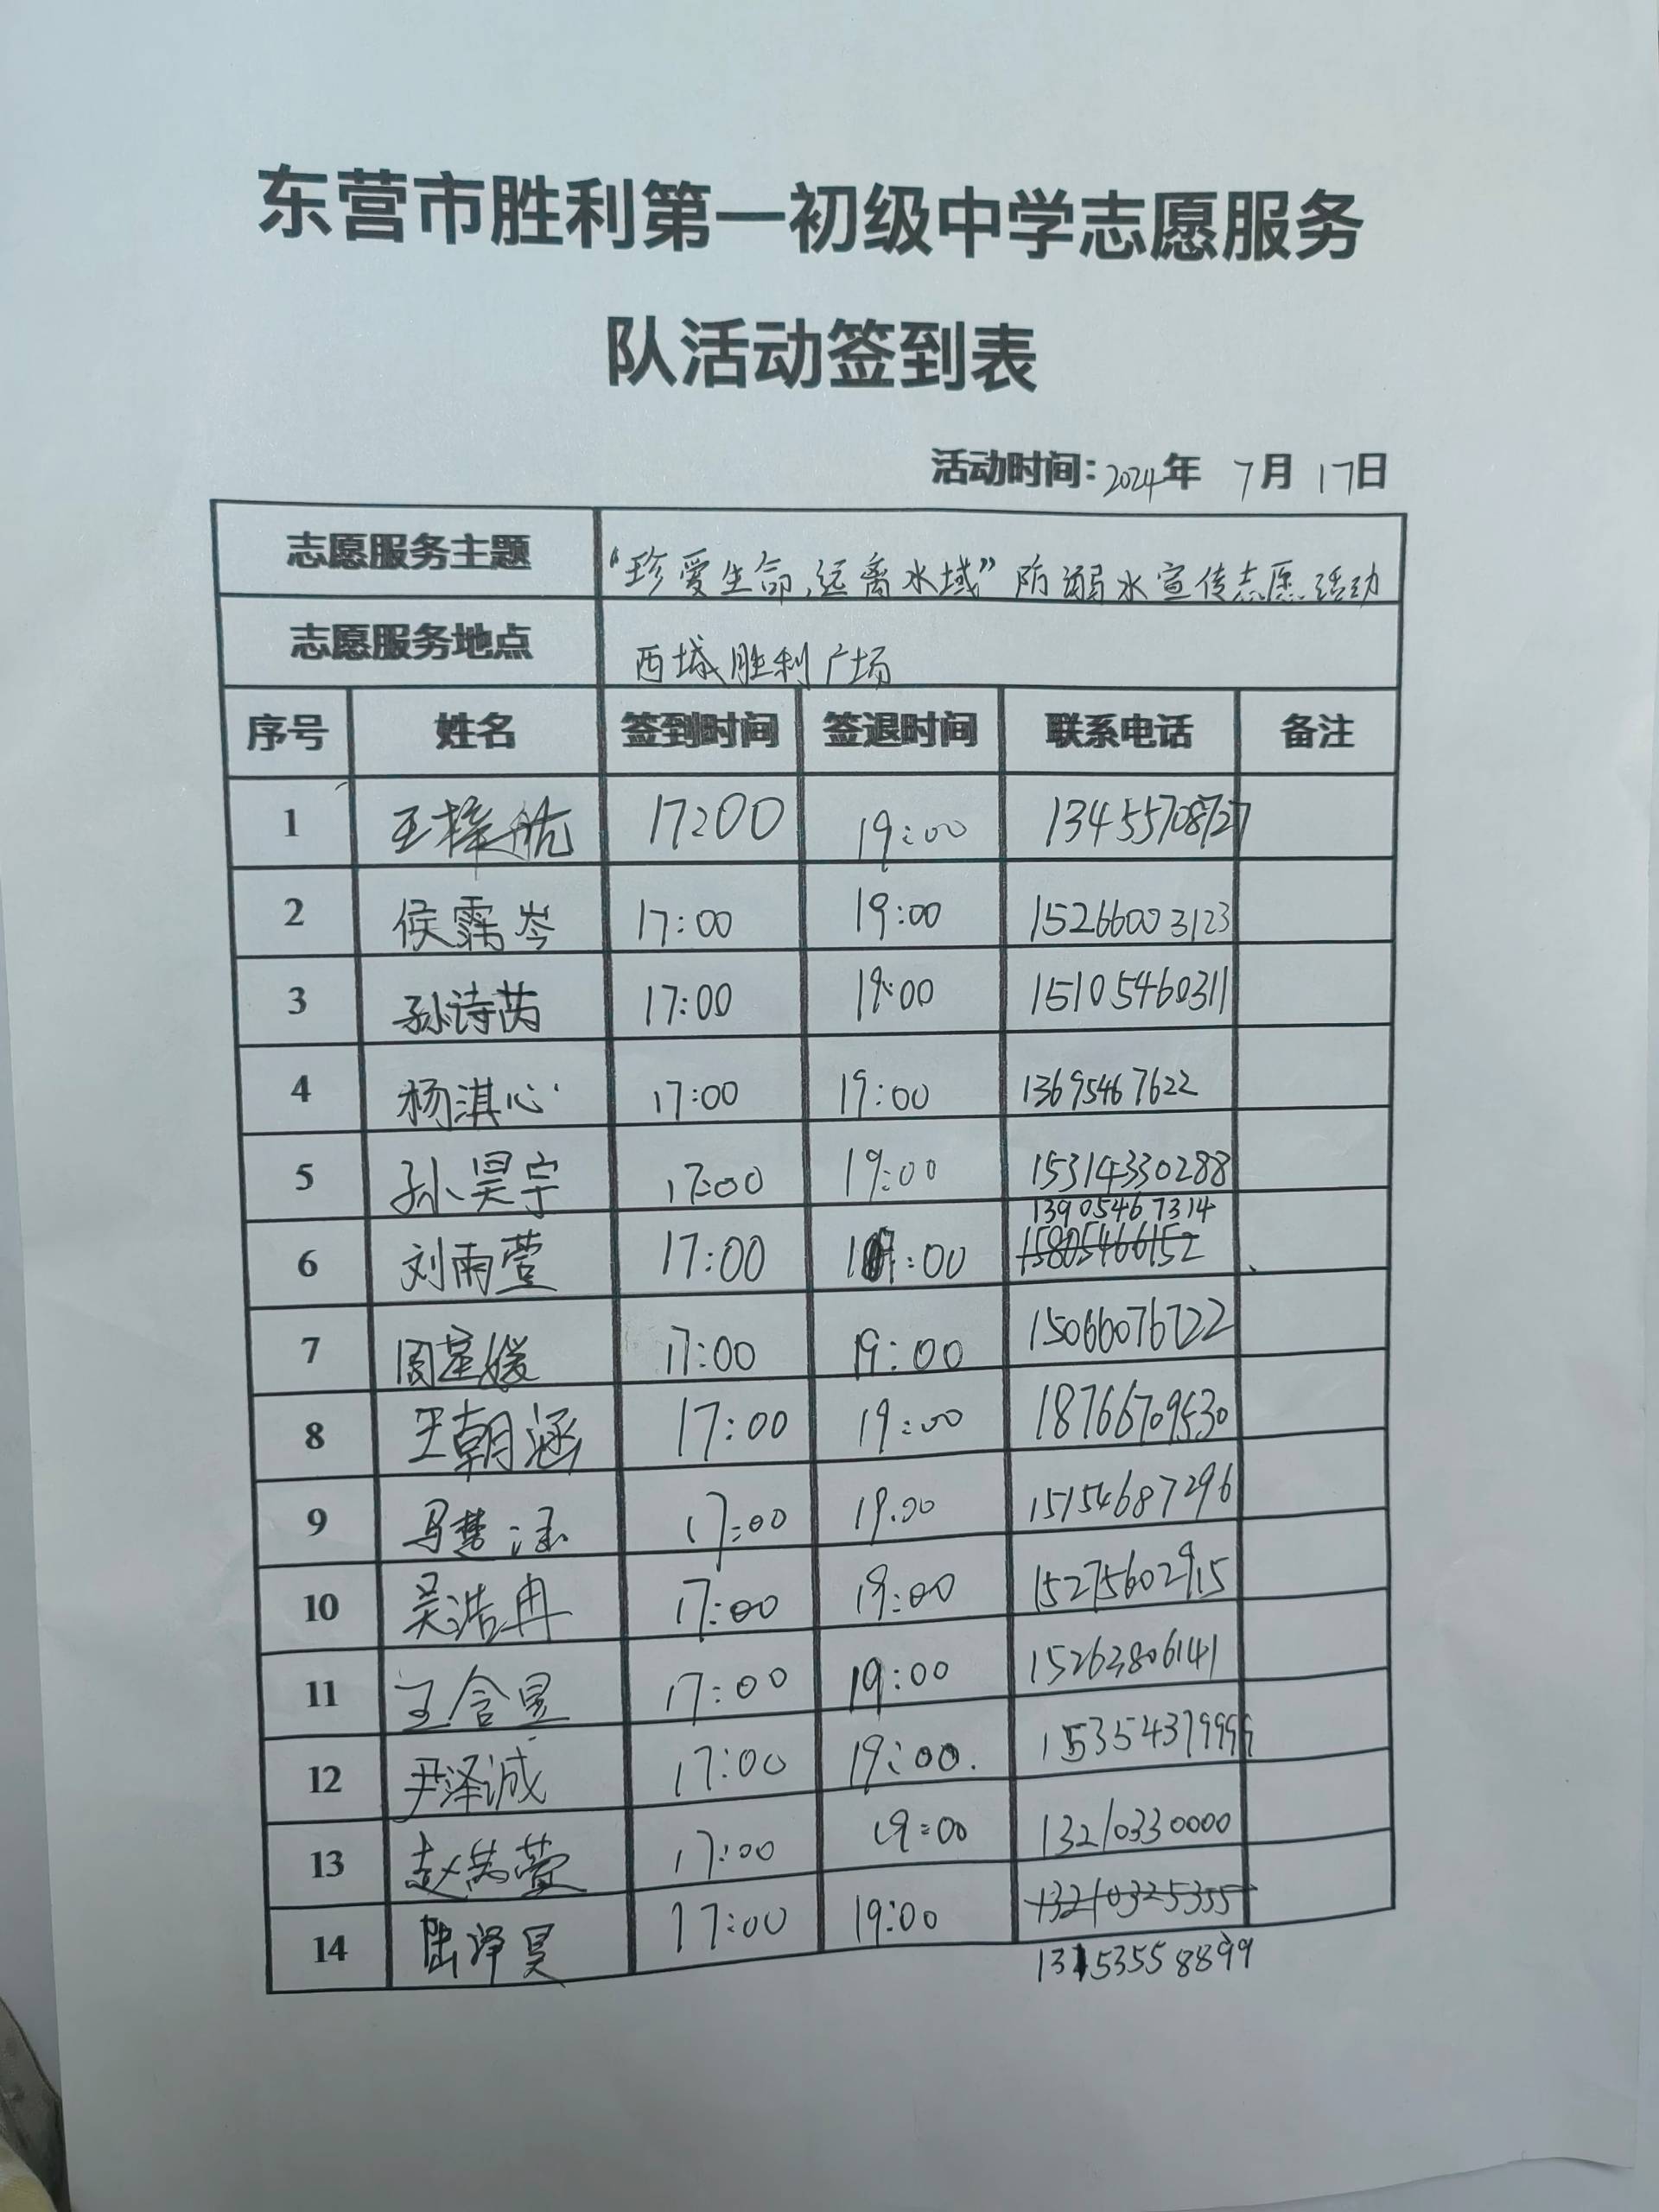 东营市胜利第一初级中学志愿服务
队活动签到表
活动时间：2024年 7月 17日
志愿服务主题 “珍爱生命,远离水域”防溺水宣传志愿活动
志愿服务地点 西城胜利广场
序号 姓名 签到时间 签退时间 联系电话 备注
1 王梓航 17:00 19:00 13455708727
2 侯霈岑 17:00 19:00 15266003123
3 孙诗芮 17:00 19:00 15105460311
4 杨淇心 17:00 19:00 13695467622
5 孙昊宇 17:00 19:00 15314330288
13905467314
6 刘雨萱 17:00 19:00 15805466152
7 周星媛 17:00 19:00 15066076722
8 王朝涵 17:00 19:00 18766709530
9 马楚涵 17:00 19:00 15154687296
10 吴浩冉 17:00 19:00 15275602915
11 王含昱 17:00 19:00 15263806141
12 尹泽诚 17:00 19:00. 15354379999
13 赵芮萱 17:00 19:00 13210330000
14 陆泽昊 17:00 19:00 13210325355
13153558899